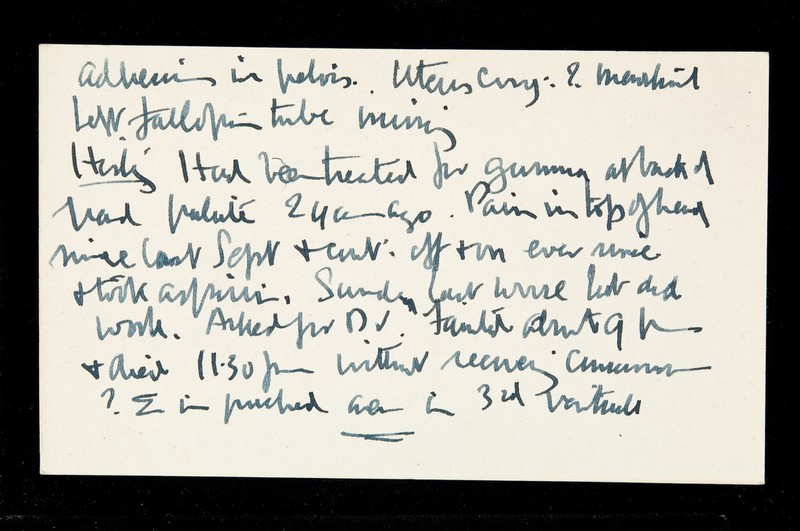 adhesions in pelvis. Uterus cong. ? menstrual
Left Fallopian tube missing
History Had been treated for gumma at back of
hard palate 2 years ago. Pain in top of head
since last Sept + cont. off + on ever since
+ took aspirin. Sunday last worse but did
work. Asked for Dr. Fainted about 9 pm
+ died 11.30 pm without recovering consciousness
? in pushed area in 3rd ventricle